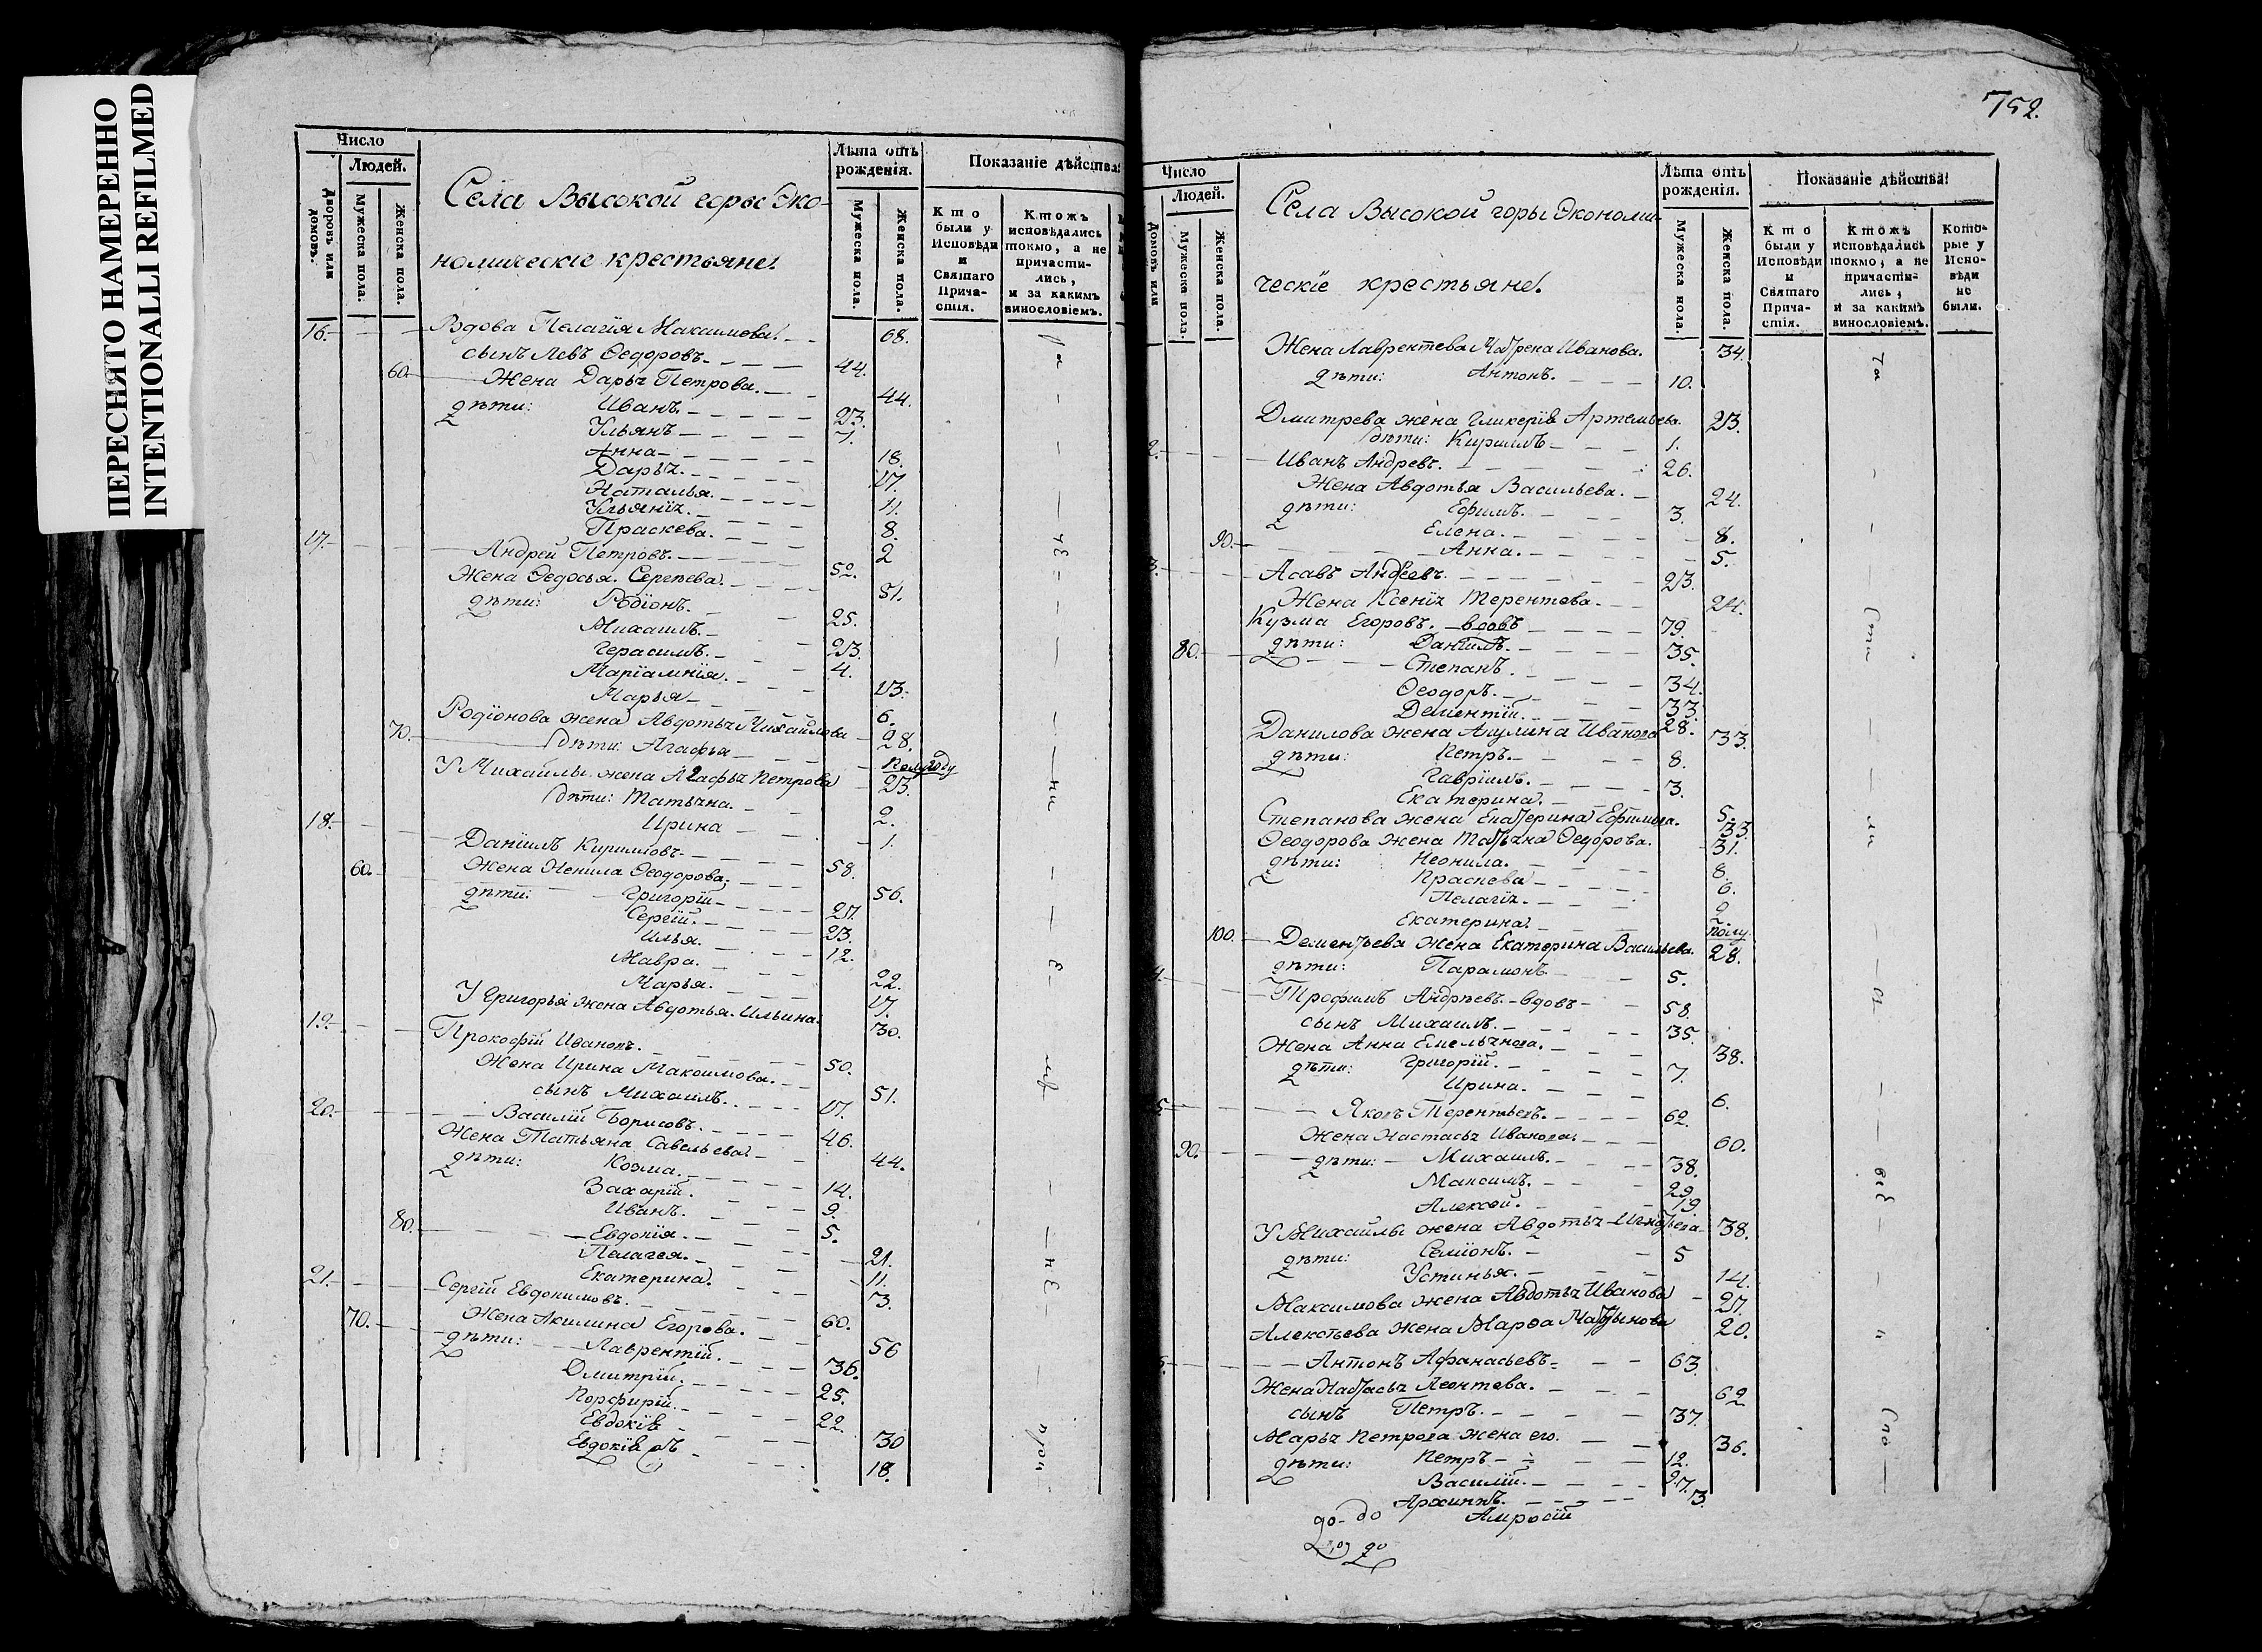 ПЕРЕСНЯТО НАМЕРЕННО
INTENTIONALLI REFILMED
Число
Людей.
Дворовъ или домовъ.
Мужеска пола.
Женска пола.
Села Высокой горы Эко-
номическіе крестьяне.
Лѣта отъ рожденія.
Мужеска пола.
Женска пола.
Показаніе дѣйства
Кто были у Исповѣди и Святаго Причастія.
Ктожъ исповѣдались токмо, а не причастились, и за какимъ винословіемъ.
16. Вдова Пелагія Максимова. 68.
сынъ Левъ Ѳедоровъ. 44.
60. Жена Дарья Петрова. 44.
дѣти: Иванъ. 23.
Ульянъ 7.
Анна 18.
Дарья. 17.
Наталья. 11.
Ульянія. 8.
Праскева. 2
17. Андрей Петровъ. 52.
Жена Ѳедосья Сергѣева. 51.
дѣти: Родіонъ. 25.
Михаилъ. 23.
Герасимъ. 4.
Маріамнія. 13.
Марья 6.
Родіонова жена Авдотья Михайлова 28.
70. дѣти: Агафья Полугоду
У Михайлы жена Агафья Петрова 23.
дѣти: Татьяна. 2.
Ирина 1.
18. Даніилъ Кириловъ. 58.
60. Жена Ненила Ѳеодорова. 56.
дѣти: Григорій 27.
Сергій. 23.
Илья. 12.
Мавра. 22.
Марья. 17.
У Григорья жена Авдотья Ильина. 30.
19. Прокофій Ивановъ. 50.
Жена Ирина Максимова. 51.
сынъ Михаилъ. 17.
20. Василій Борисовъ. 46.
Жена Татьяна Савельева. 44.
дѣти: Козма. 14.
Захарій. 9.
Иванъ. 5.
80. Евдокія. 21.
Пелагея. 11.
Екатерина. 3.
21. Сергій Евдокимовъ. 60.
70. Жена Акилина Егорова. 56
дѣти: Лаврентій. 36.
Дмитрій. 25.
Порфирій. 22.
Евдокія 30
Евдокія 18.
752.
Число
Людей.
Домовъ или
Мужеска пола.
Женска пола.
Села Высокой горы Экономи-
ческіе крестьяне.
Лѣта отъ рожденія.
Мужеска пола.
Женска пола.
Показаніе дѣйства
Кто были у Исповѣди и Святаго Причастія.
Ктожъ исповѣдались токмо, а не причастились, и за какимъ винословіемъ.
Которые у Исповѣди не были.
Жена Лаврентева Матрена Иванова. 34.
дѣти: Антонъ. 10.
Дмитрева жена Гликерія Артемьева. 23.
дѣти: Кирилъ 1.
2. Иванъ Андревъ. 26.
Жена Авдотья Васильева. 24.
дѣти: Ефимъ. 3.
Елена. 8.
90. Анна. 5.
3. Асавъ Андреевъ. 23.
Жена Ксенія Терентева. 24.
Кузма Егоровъ. вдовъ 79.
80. дѣти: Даніилъ. 35.
Степанъ. 34.
Ѳеодоръ. 33.
Дементій. 28.
Данилова жена Акулина Иванова 33.
дѣти: Петръ. 8.
Гавріилъ. 3.
Екатерина. 5.
Степанова жена Екатерина Ефимова. 33.
Ѳеодорова жена Татьяна Ѳедорова. 31.
дѣти: Неонила. 8.
Праскева 6.
Пелагія. 2.
Екатерина. полу
100. Дементьева жена Екатерина Васильева. 28.
дѣти: Парамонъ 5.
4. Трофимъ Андрѣевъ. вдовъ 58.
сынъ Михаилъ. 35.
Жена Анна Емельянова. 38.
дѣти: Григорій. 7.
Ирина. 6.
5. Яковъ Терентьевъ. 62.
Жена Настасья Иванова. 60.
90. дѣти: Михаилъ. 38.
Максимъ. 29.
Алексей. 19.
У Михайлы жена Авдотья Игнатьева 38.
дѣти: Семіонъ. 5
Устинья. 14.
Максимова жена Авдотья Иванова 27.
Алексѣева жена Марѳа Мартынова 20.
6. Антонъ Афанасьевъ 63.
Жена Настасья Леонтева. 62
сынъ Петръ. 37.
Марья Петрова жена его. 36.
дѣти: Петръ 12.
Василій. 7.
Архиппъ. 3.